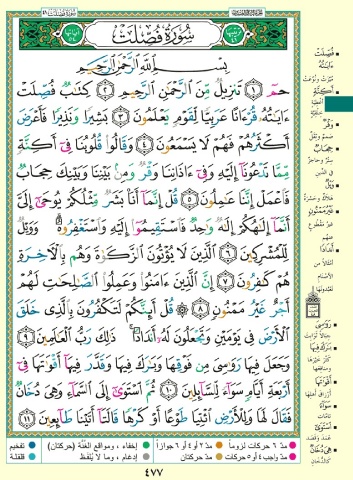 سُورَةُ فُصِّلَتْ
بِسْمِ ٱللَّهِ ٱلرَّحْمَٰنِ ٱلرَّحِيمِ
حمٓ ١ تَنزِيلٌ مِّنَ ٱلرَّحْمَٰنِ ٱلرَّحِيمِ ٢ كِتَٰبٌ فُصِّلَتْ
ءَايَٰتُهُۥ قُرْءَانًا عَرَبِيًّا لِّقَوْمٍ يَعْلَمُونَ ٣ بَشِيرًا وَنَذِيرًا فَأَعْرَضَ
أَكْثَرُهُمْ فَهُمْ لَا يَسْمَعُونَ ٤ وَقَالُوا۟ قُلُوبُنَا فِىٓ أَكِنَّةٍ
مِّمَّا تَدْعُونَآ إِلَيْهِ وَفِىٓ ءَاذَانِنَا وَقْرٌ وَمِنۢ بَيْنِنَا وَبَيْنِكَ حِجَابٌ
فَٱعْمَلْ إِنَّنَا عَٰمِلُونَ ٥ قُلْ إِنَّمَآ أَنَا۠ بَشَرٌ مِّثْلُكُمْ يُوحَىٰٓ إِلَىَّ
أَنَّمَآ إِلَٰهُكُمْ إِلَٰهٌ وَٰحِدٌ فَٱسْتَقِيمُوٓا۟ إِلَيْهِ وَٱسْتَغْفِرُوهُ ۗ وَوَيْلٌ
لِّلْمُشْرِكِينَ ٦ ٱلَّذِينَ لَا يُؤْتُونَ ٱلزَّكَوٰةَ وَهُم بِٱلْءَاخِرَةِ
هُمْ كَٰفِرُونَ ٧ إِنَّ ٱلَّذِينَ ءَامَنُوا۟ وَعَمِلُوا۟ ٱلصَّٰلِحَٰتِ لَهُمْ
أَجْرٌ غَيْرُ مَمْنُونٍ ٨ ۞ قُلْ أَئِنَّكُمْ لَتَكْفُرُونَ بِٱلَّذِى خَلَقَ
ٱلْأَرْضَ فِى يَوْمَيْنِ وَتَجْعَلُونَ لَهُۥٓ أَندَادًا ۚ ذَٰلِكَ رَبُّ ٱلْعَٰلَمِينَ ٩
وَجَعَلَ فِيهَا رَوَٰسِىَ مِن فَوْقِهَا وَبَٰرَكَ فِيهَا وَقَدَّرَ فِيهَآ أَقْوَٰتَهَا فِىٓ
أَرْبَعَةِ أَيَّامٍ سَوَآءً لِّلسَّآئِلِينَ ١٠ ثُمَّ ٱسْتَوَىٰٓ إِلَى ٱلسَّمَآءِ وَهِىَ دُخَانٌ
فَقَالَ لَهَا وَلِلْأَرْضِ ٱئْتِيَا طَوْعًا أَوْ كَرْهًا قَالَتَآ أَتَيْنَا طَآئِعِينَ ١١
فُصِّلَتْ
ءَايَٰتُهُۥ
أَكِنَّةٍ
وَقْرٌ
حِجَابٌ
وَيْلٌ
غَيْرُ مَمْنُونٍ
أَندَادًا
رَوَٰسِىَ
أَقْوَٰتَهَا
هِىَ دُخَانٌ
مدّ ٦ حركات لزوماً مدّ ٢ أو ٤ أو ٦ جوازاً إخفاء، ومواقع الغنّة (حركتان) تفخيم
مدّ واجب ٤ أو ٥ حركات مدّ حركتان إدغام، وما لا يُلفظ قلقلة
٤٧٧